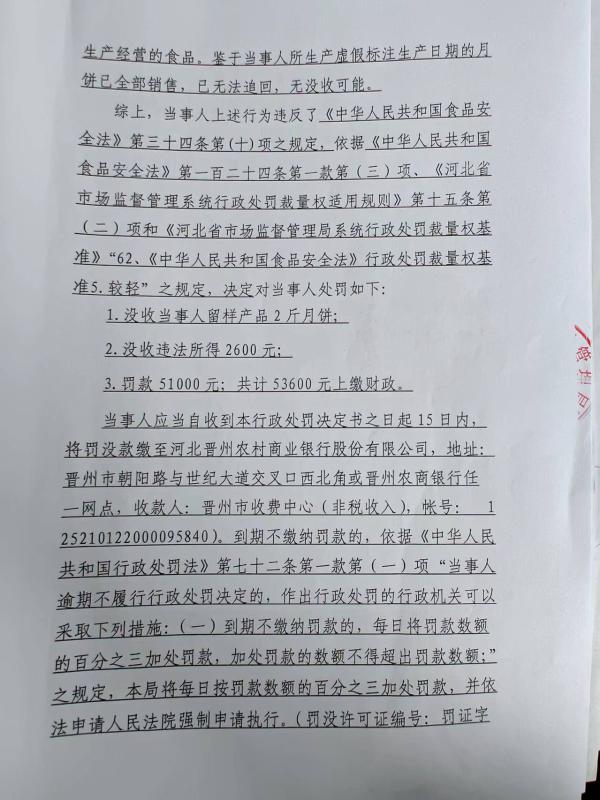 生产经营的食品。鉴于当事人所生产虚假标注生产日期的月
饼已全部销售，已无法追回，无没收可能。
综上，当事人上述行为违反了《中华人民共和国食品安
全法》第三十四条第(十)项之规定，依据《中华人民共和国
食品安全法》第一百二十四条第一款第（三）项、《河北省
市场监督管理系统行政处罚裁量权适用规则》第十五条第
（二）项和《河北省市场监督管理局系统行政处罚裁量权基
准》“62、《中华人民共和国食品安全法》行政处罚裁量权基
准5.较轻”之规定，决定对当事人处罚如下：
1.没收当事人留样产品2斤月饼；
2.没收违法所得2600元；
3.罚款51000元；共计53600元上缴财政。
当事人应当自收到本行政处罚决定书之日起15日内，
将罚没款缴至河北晋州农村商业银行股份有限公司，地址：
晋州市朝阳路与世纪大道交叉口西北角或晋州农商银行任
一网点，收款人：晋州市收费中心（非税收入），帐号：  1
25210122000095840）。到期不缴纳罚款的，依据《中华人民
共和国行政处罚法》第七十二条第一款第（一）项“当事人
逾期不履行行政处罚决定的，作出行政处罚的行政机关可以
采取下列措施：（一）到期不缴纳罚款的，每日将罚款数额
的百分之三加处罚款，加处罚款的数额不得超出罚款数额；”
之规定，本局将每日按罚款数额的百分之三加处罚款，并依
法申请人民法院强制申请执行。（罚没许可证编号：罚证字